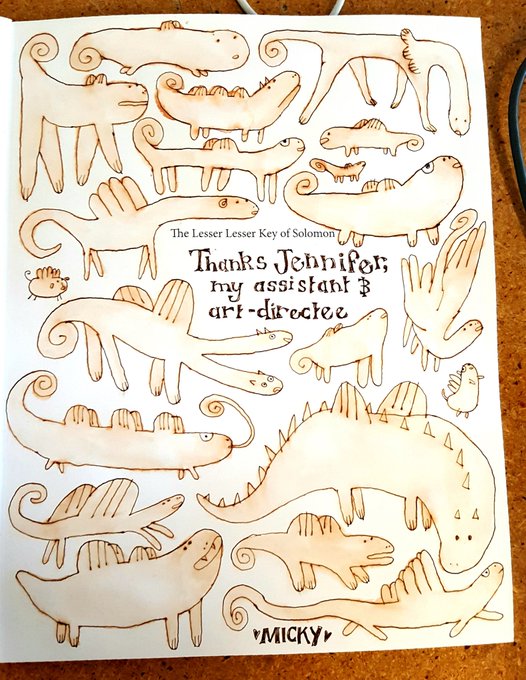 The Lesser Lesser Key of Solomon
Thanks Jennifer,
my assistant &
art-directee
♥MICKY♥